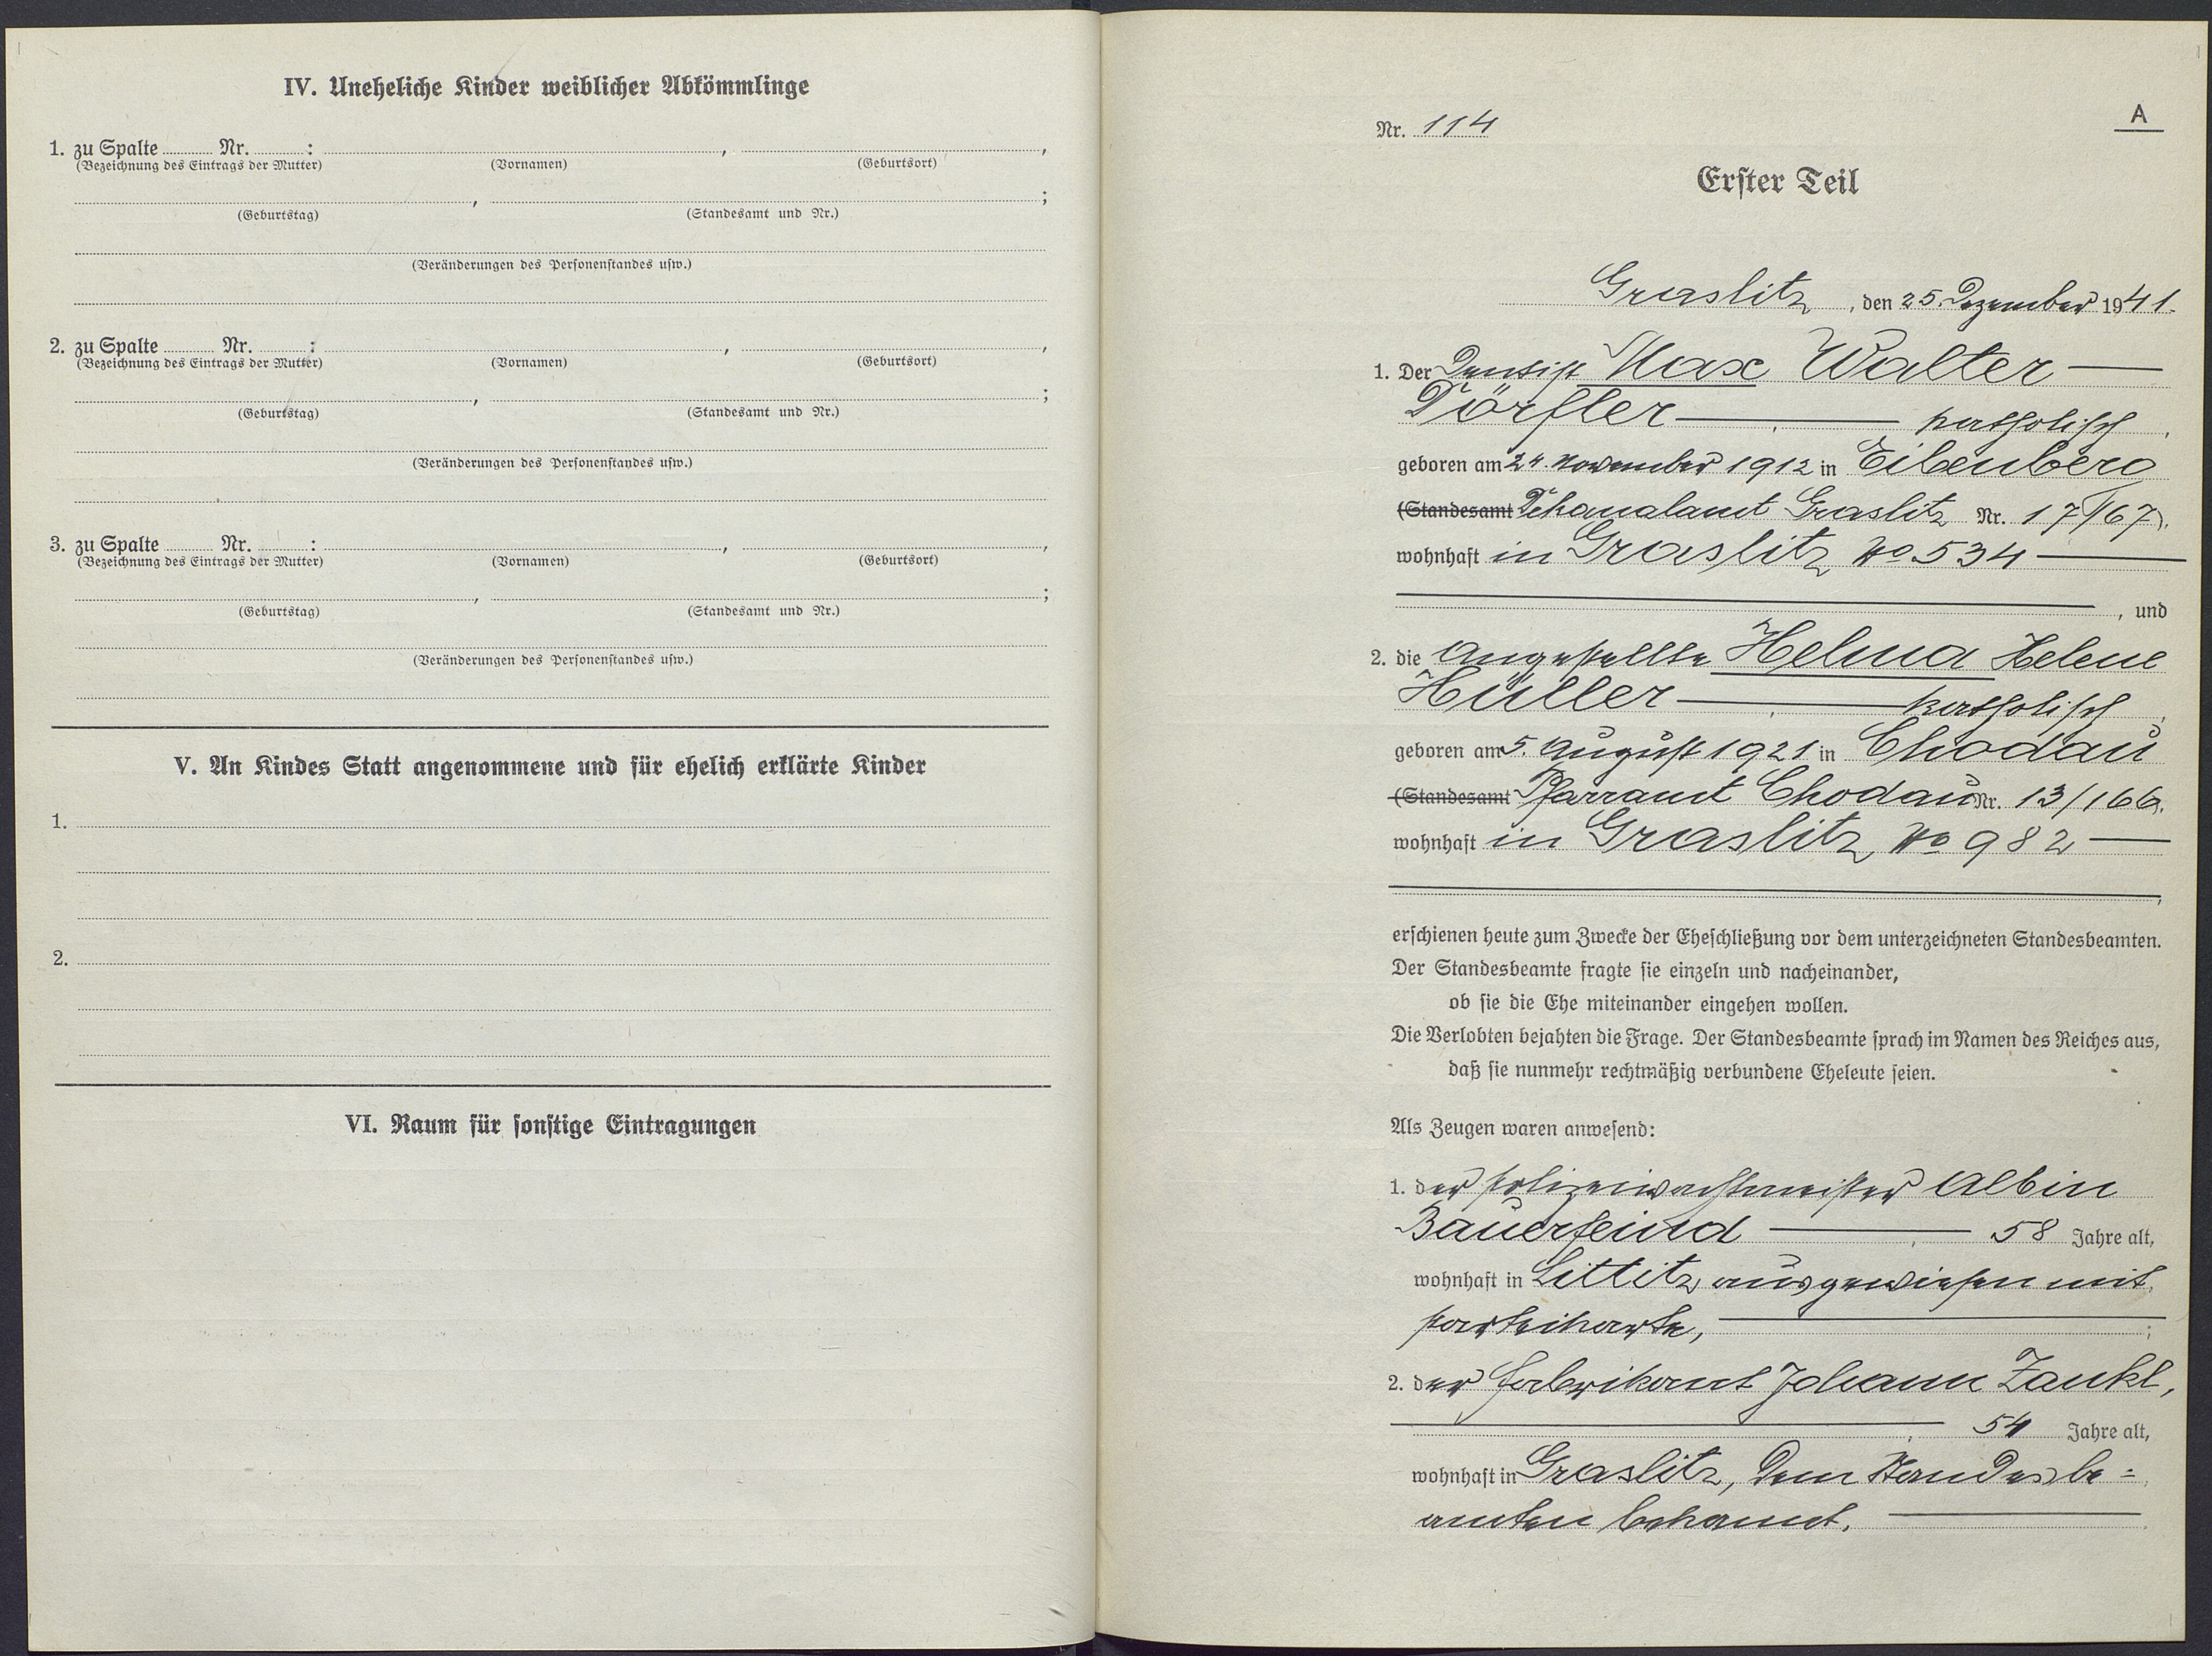 IV. Uneheliche Kinder weiblicher Abkömmlinge
1. zu Spalte ........ Nr. ........ : ........ , ........ ,
(Bezeichnung des Eintrags der Mutter) (Vornamen) (Geburtsort)
........ , ........ ;
(Geburtstag) (Standesamt und Nr.)
(Veränderungen des Personenstandes usw.)
2. zu Spalte ........ Nr. ........ : ........ , ........ ,
(Bezeichnung des Eintrags der Mutter) (Vornamen) (Geburtsort)
........ , ........ ;
(Geburtstag) (Standesamt und Nr.)
(Veränderungen des Personenstandes usw.)
3. zu Spalte ........ Nr. ........ : ........ , ........ ,
(Bezeichnung des Eintrags der Mutter) (Vornamen) (Geburtsort)
........ , ........ ;
(Geburtstag) (Standesamt und Nr.)
(Veränderungen des Personenstandes usw.)
V. An Kindes Statt angenommene und für ehelich erklärte Kinder
1.
2.
VI. Raum für sonstige Eintragungen
A
Nr. 114
Erster Teil
Graslitz, den 25. Dezember 1941.
1. Der Dentist Max Walter —
Dörfler —, — katholisch,
geboren am 24. November 1912 in Eibenberg
(Standesamt Dekanalamt Graslitz Nr. 17/67),
wohnhaft in Graslitz No 534 —
, und
2. die Angestellte Helma Helene
Hüller —, — katholisch,
geboren am 5. August 1921 in Chodau
(Standesamt Pfarramt Chodau Nr. 13/166),
wohnhaft in Graslitz, No 982 —
,
erschienen heute zum Zwecke der Eheschließung vor dem unterzeichneten Standesbeamten.
Der Standesbeamte fragte sie einzeln und nacheinander,
ob sie die Ehe miteinander eingehen wollen.
Die Verlobten bejahten die Frage. Der Standesbeamte sprach im Namen des Reiches aus,
daß sie nunmehr rechtmäßig verbundene Eheleute seien.
Als Zeugen waren anwesend:
1. der Polizeiwachtmeister Albin
Bauerfeind —, — 58 Jahre alt,
wohnhaft in Littitz, ausgewiesen mit
Parteikarte, — ;
2. der Fabrikant Johann Zankl,
—, 54 Jahre alt,
wohnhaft in Graslitz, dem Standesbe=
amten bekannt. —